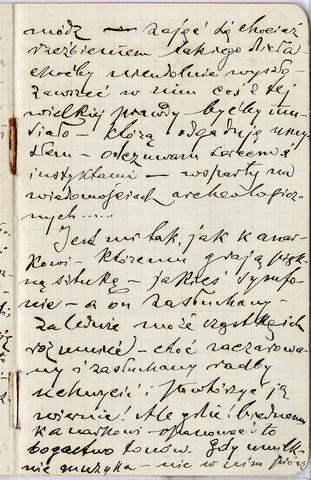 módz — zająć się chociaż
rzeźbieniem takiego dzieła
choćby nieudolnie wyszło -
zawrzeć w nim coś z tej
wielkiej prawdy być by mu-
siało - którą odgaduję umy-
słem - odczuwam sercem i
instynktami - wsparty na
wiadomościach archeologicz-
nych.....
Jest mi tak, jak kanar-
kowi - któremu grają pięk-
ną sztukę - jakieś symfo-
nie - a on zasłuchany -
zaledwie może cząstkę ich
rozumieć - choć zaczarowa-
ny i zasłuchany radby
uchwycić i powtórzyć ją
wiernie! Ale gdzież biednemu
kanarkowi - opanować to
bogactwo tonów. Gdy umilk-
nie muzyka - nie w nim